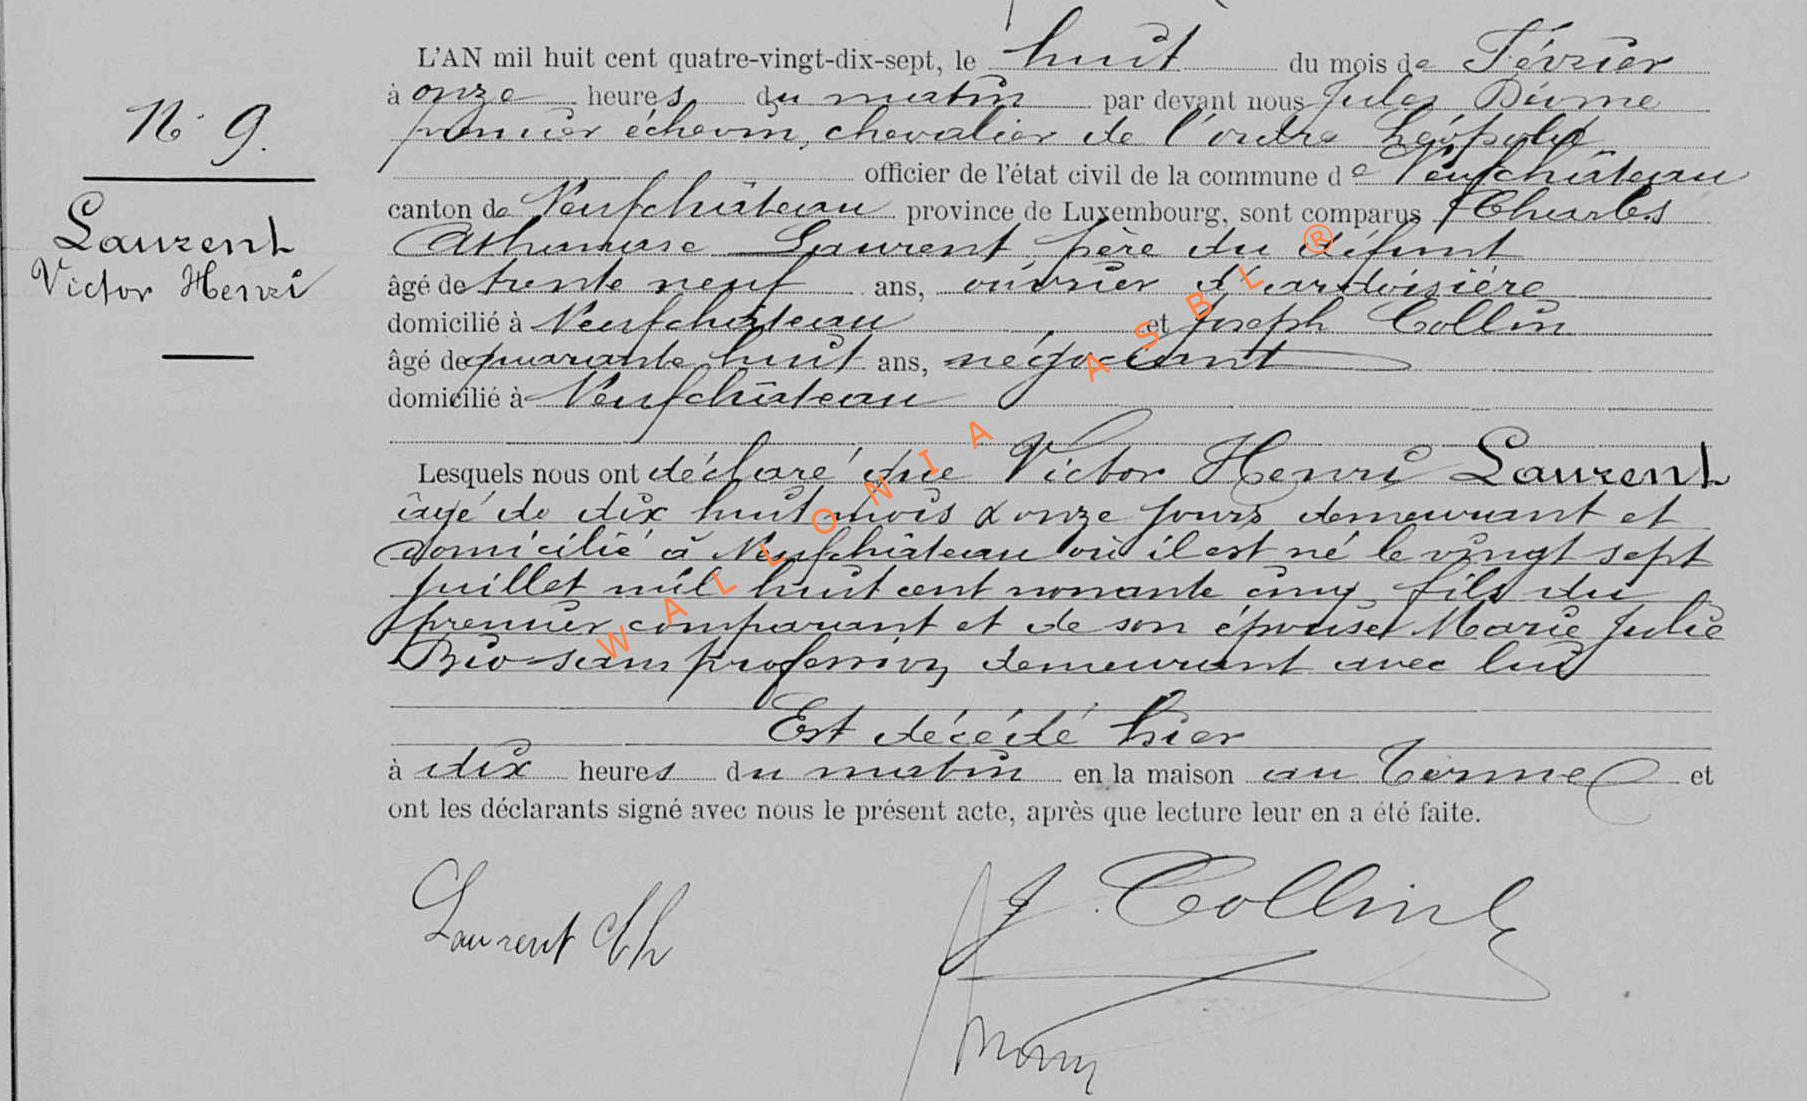 N° 9.
Laurent
Victor Henri
L'AN mil huit cent quatre-vingt-dix-sept, le huit du mois de Février
à onze heures du matin par devant nous Jules
premier échevin, chevalier de l'ordre Léopold
officier de l'état civil de la commune de Neufchâteau
canton de Neufchâteau province de Luxembourg, sont comparus Charles
Athanase Laurent, père du défunt
âgé de trente neuf ans, ouvrier d'ardoisière
domicilié à Neufchâteau et Joseph Collin
âgé de quarante huit ans, négociant
domicilié à Neufchâteau
Lesquels nous ont déclaré que Victor Henri Laurent
âgé de dix huit mois & onze jours demeurant et
domicilié à Neufchâteau où il est né le vingt sept
juillet mil huit cent nonante cinq, fils du
premier comparant et de son épouse Marie Julie
Bio sans profession, demeurant avec lui
Est décédé hier
à dix heures du matin en la maison au Terme et
ont les déclarants signé avec nous le présent acte, après que lecture leur en a été faite.
Laurent Ch
J. Collin
WALLONIA ASBL ®